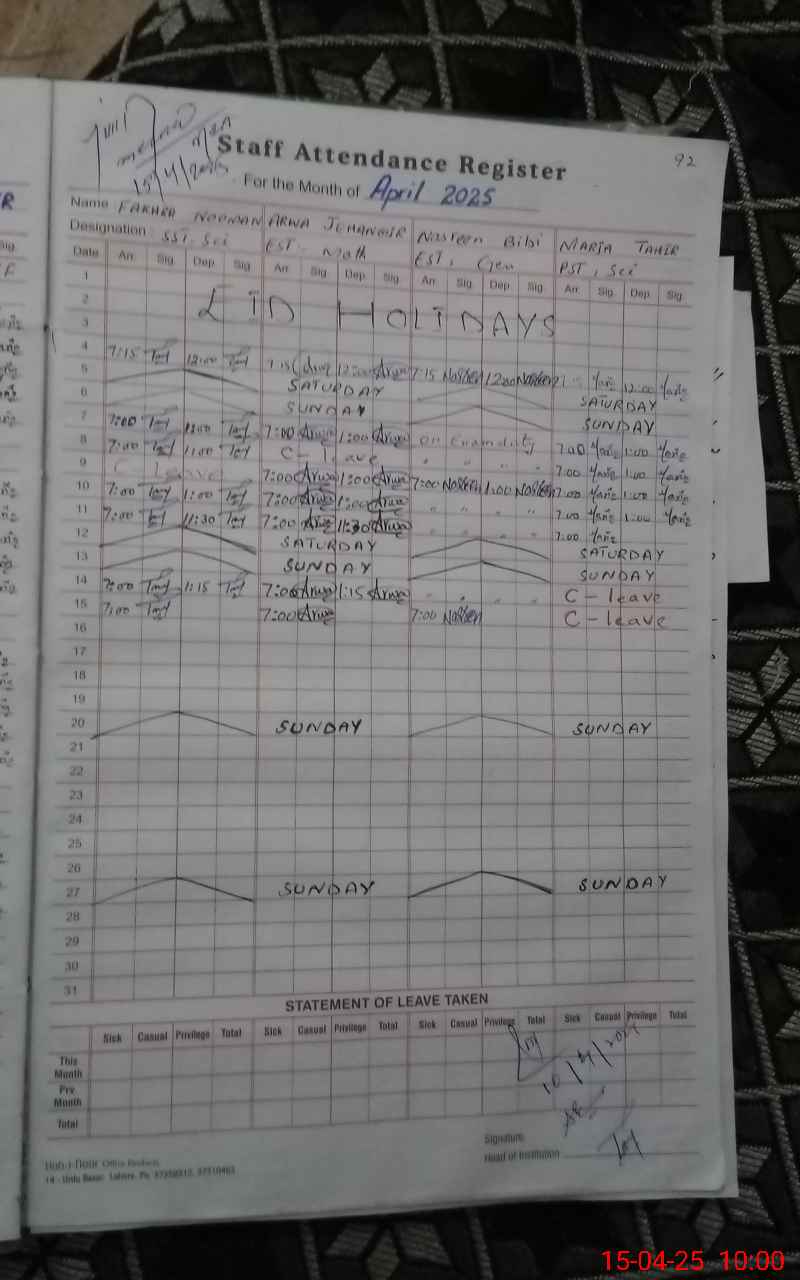 15/4/2025
Staff Attendance Register
92
For the Month of April 2025
Name FAKHRA NOOMAN ARWA JEHANGIR Nasreen Bibi MARIA TAHIR
Designation SST. Sci EST. Math EST, Gen PST, Sci
Date Arr. Sig. Dep. Sig. Arr. Sig. Dep. Sig. Arr. Sig. Dep. Sig. Arr. Sig. Dep. Sig.
1
2
EID HOLIDAYS
3
4 7:15 12:00 7:15 Arwa 12:00 Arwa 7:15 Nasreen 12:00 Nasreen 12:00
5 SATURDAY SATURDAY
6 SUNDAY SUNDAY
7 7:00 1:00 7:00 Arwa 1:00 Arwa on Exam duty 7:00 1:00
8 7:00 1:00 C - leave " " " " 7:00 1:00
9 C leave 7:00 Arwa 1:00 Arwa 7:00 Nasreen 1:00 Nasreen 7:00 1:00
10 7:00 1:00 7:00 Arwa 1:00 Arwa " " " " 7:00 1:00
11 7:00 11:30 7:00 Arwa 11:30 Arwa " " " " 7:00
12 SATURDAY SATURDAY
13 SUNDAY SUNDAY
14 7:00 1:15 7:00 Arwa 1:15 Arwa " " " " C - leave
15 7:00 7:00 Arwa 7:00 Nasreen C - leave
16
17
18
19
20 SUNDAY SUNDAY
21
22
23
24
25
26
27 SUNDAY SUNDAY
28
29
30
31
STATEMENT OF LEAVE TAKEN
Sick Casual Privilege Total Sick Casual Privilege Total Sick Casual Privilege Total Sick Casual Privilege Total
This Month
Prv Month
Total
Signature
Head of Institution
14 - Urdu Bazar Lahore. Ph:
15-04-25 10:00